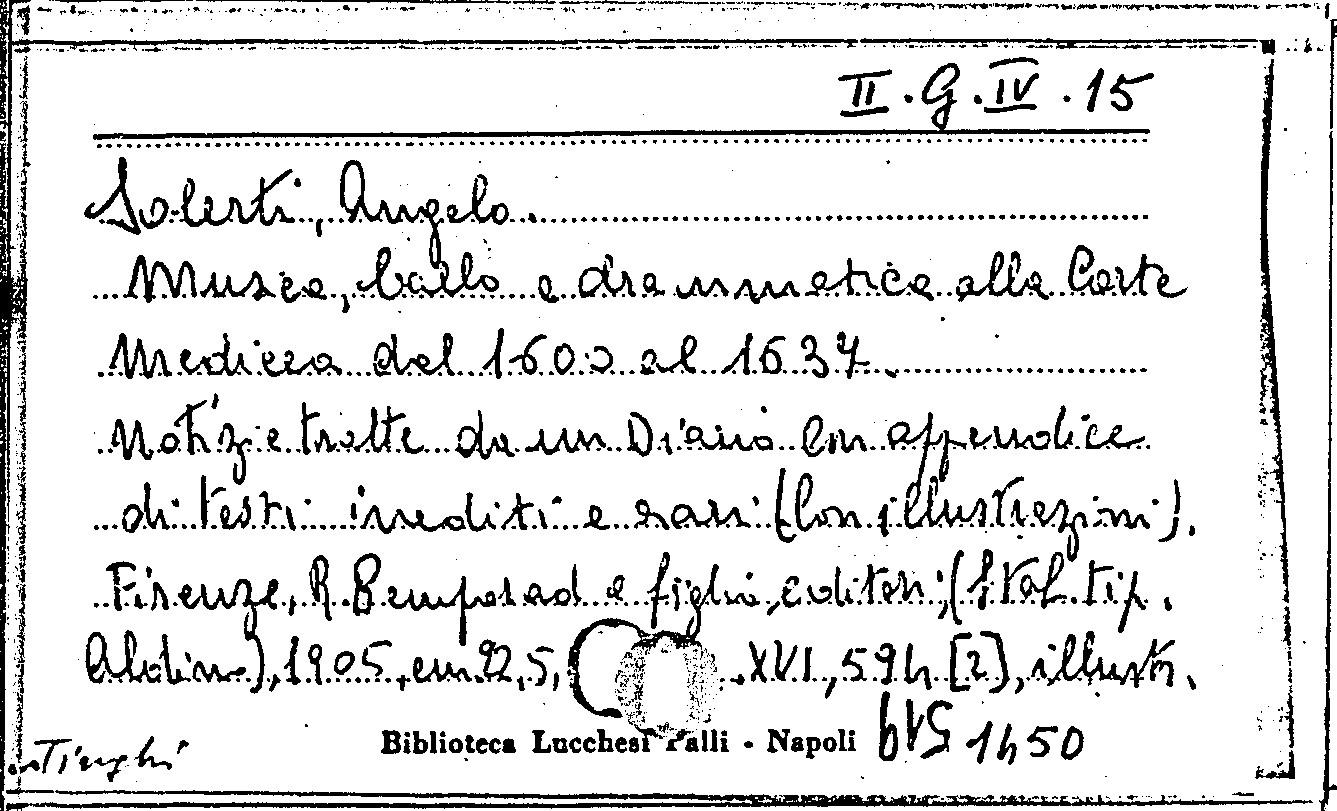 II.G.IV.15
Solerti, Angelo.
Musica, ballo e drammatica alla Corte
Medicea dal 1600 al 1637.
Notizie tratte da un Diario con appendice
di testi inediti e rari (Con illustrazioni).
Firenze, R. Bemporad e figlio, editori, (Stab. tip.
Aldino), 1905, cm. 22,5, XVI, 594 [2], illustr.
Biblioteca Lucchesi Palli - Napoli 1450
Tinghi